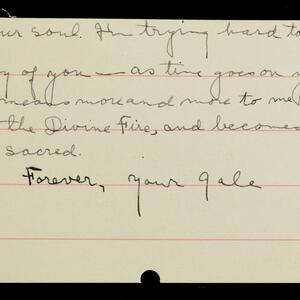 our soul. I'm trying hard to
y of you — as time goes on
means more and more to me
the Divine Fire, and becomes
sacred.
Forever, your Gale